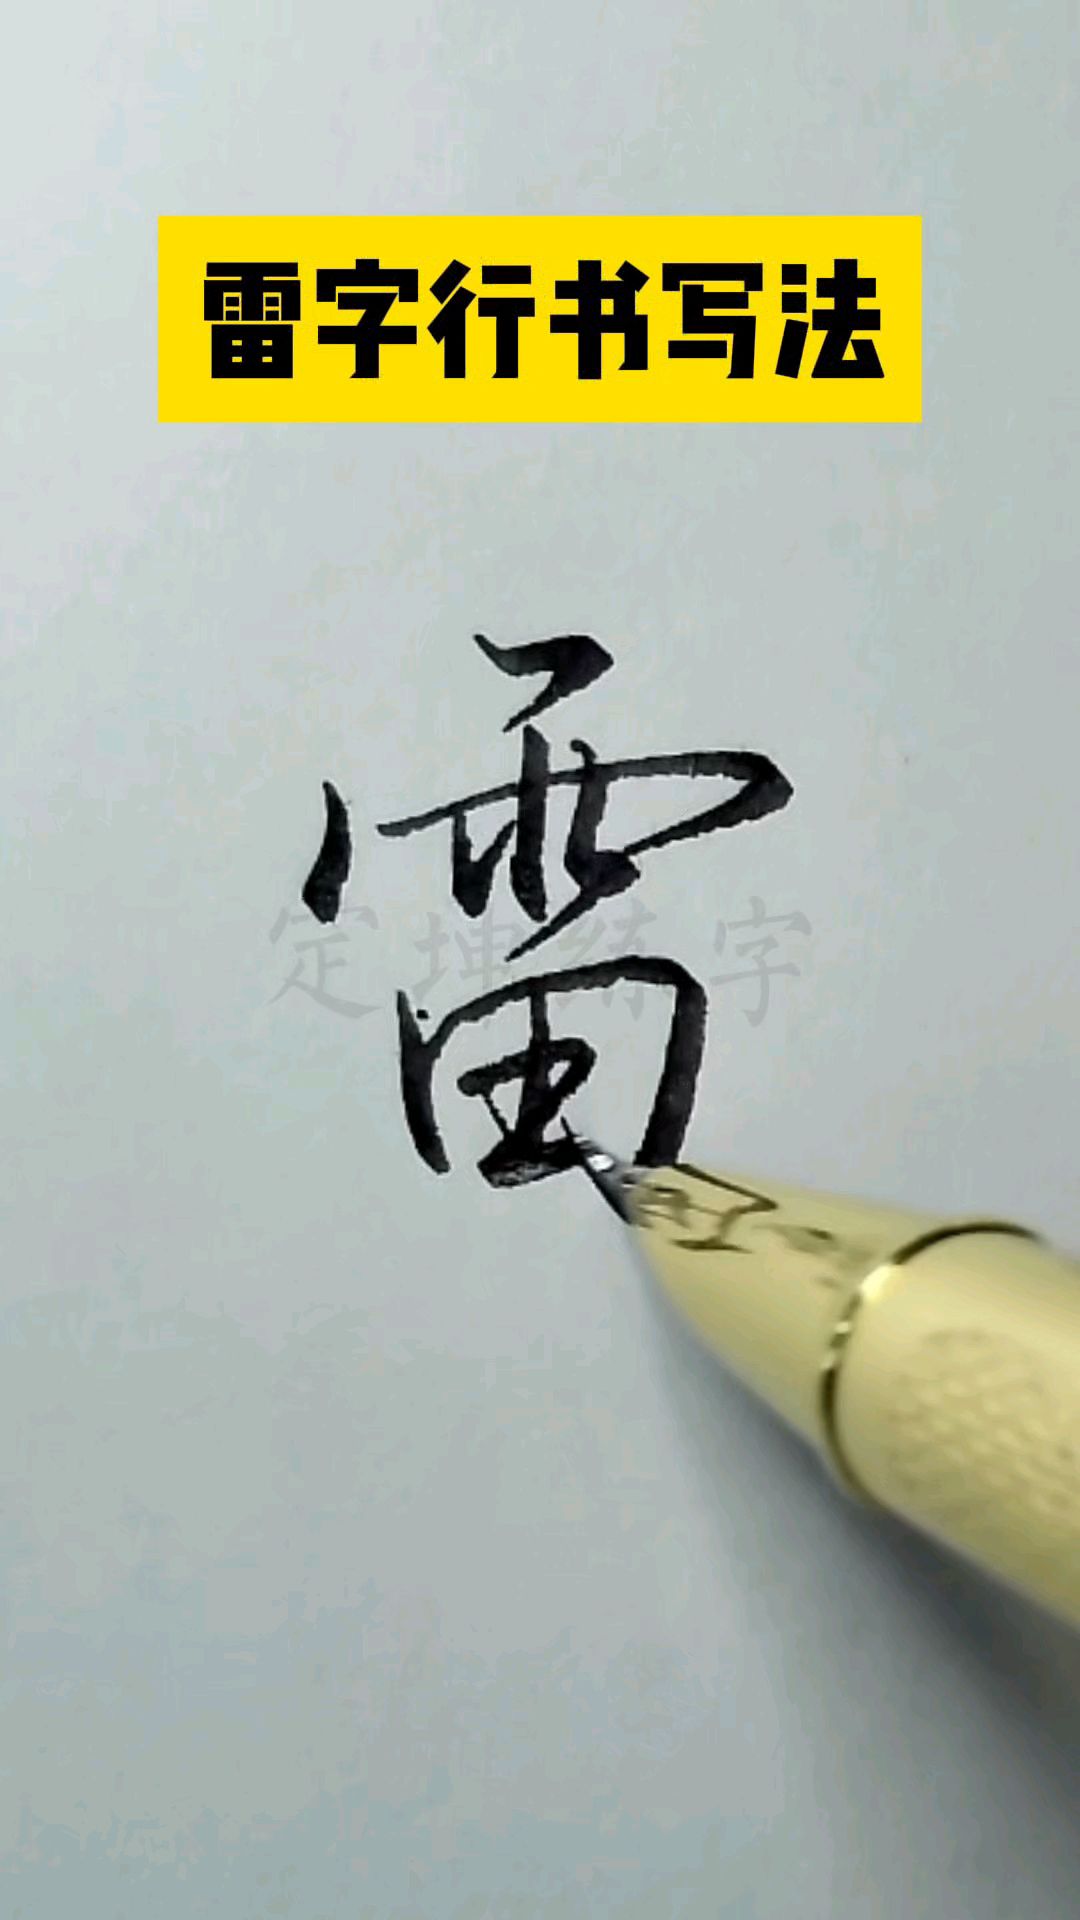 雷字行书写法
雷
定坤练字